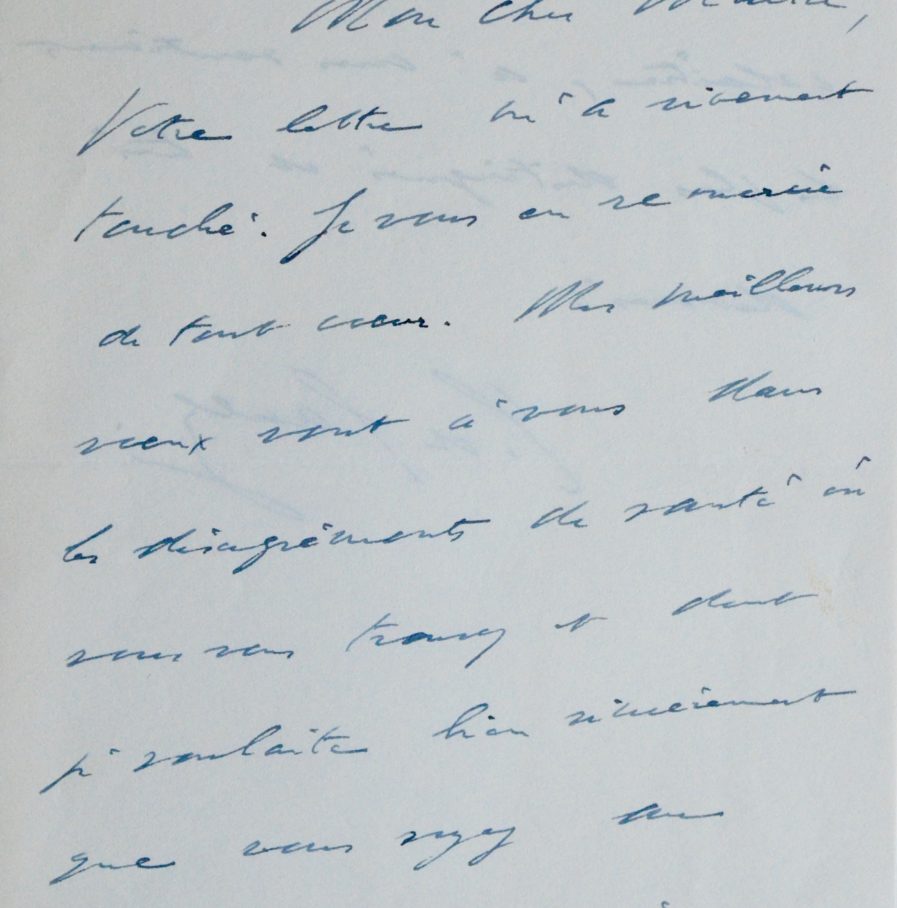 Mon cher Maître,
Votre lettre m'a vivement
touché. Je vous en remercie
de tout cœur. Mes meilleurs
vœux vont à vous dans
les désagréments de santé où
vous vous trouvez et dont
je souhaite bien sincèrement
que vous soyez